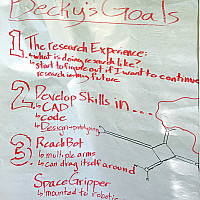 Becky's Goals
1. The research Experience:
↳ what is doing research like?
↳ start to figure out if I want to continue
research in my future
2. Develop Skills in...
↳ CAD
↳ code
↳ Design + prototyping
3. ReachBot
↳ multiple arms
↳ can drag itself around
SpaceGripper
↳ mounted to robotic